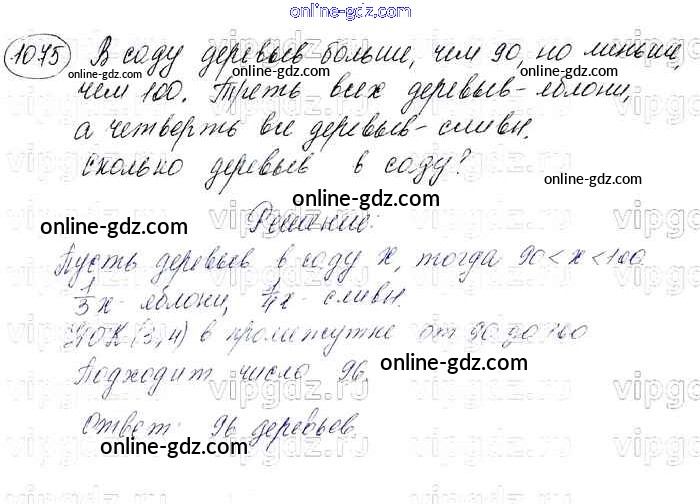 online-gdz.com
1075 В саду деревьев больше, чем 90, но меньше,
online-gdz.com
чем 100. Треть всех деревьев - яблони,
online-gdz.com
а четверть все деревьев - сливы.
Сколько деревьев в саду?
online-gdz.com
online-gdz.com
online-gdz.com
Решение:
Пусть деревьев в саду x, тогда 90 < x < 100
1/3 x - яблони, 1/4 x - сливы.
online-gdz.com
НОК (3,4) в промежутке от 90 до 100
online-gdz.com
Подходит число 96.
Ответ: 96 деревьев.
online-gdz.com
vipgdz.ru